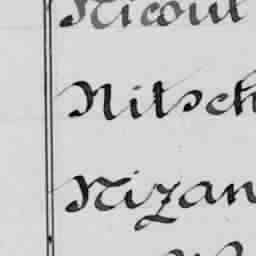 Nicoul
Nitsch
Nizan